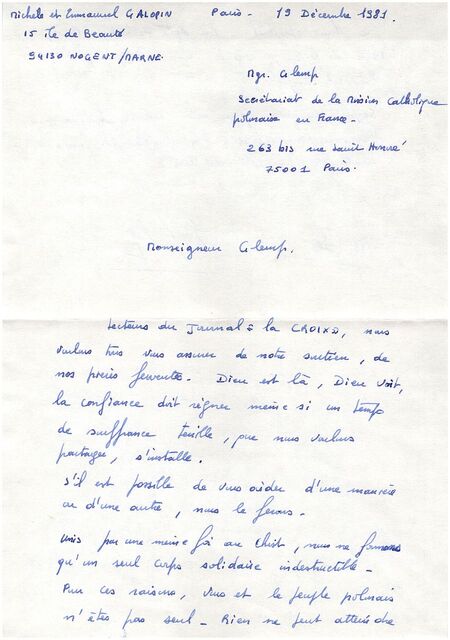 Michèle et Emmanuel GALOPIN Paris - 19 Décembre 1981.
15 île de Beauté
94130 NOGENT/MARNE.
Mgr. Glemp
Secrétariat de la Mission Catholique
polonaise en France -
263 bis rue Saint Honoré
75001 Paris.
Monseigneur Glemp,
Lecteurs du Journal " la CROIX", nous
voulons vous assurer de notre soutien, de
nos prières ferventes. Dieu est là, Dieu voit,
la confiance doit régner même si un temps
de souffrance terrible, que nous voulons
partager, s'installe.
S'il est possible de vous aider d'une manière
ou d'une autre, nous le ferons.
Unis par une même foi au Christ, nous ne formons
qu'un seul corps solidaire indestructible -
Pour ces raisons, vous et le peuple polonais
n'êtes pas seul - Rien ne peut atteindre